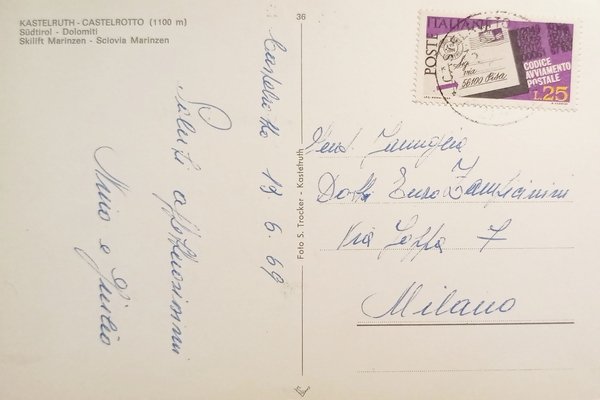 KASTELRUTH - CASTELROTTO (1100 m)
Südtirol - Dolomiti
Skilift Marinzen - Sciovia Marinzen
36
Castelrotto 19.6.69
Saluti affettuosissimi
Nino e Giulio
Foto S. Trocker - Kastelruth
POSTE ITALIANE
56100 Pisa
CODICE
AVVIAMENTO
POSTALE
L.25
Gent. Famiglia
Dott. Enzo
Via 7
Milano